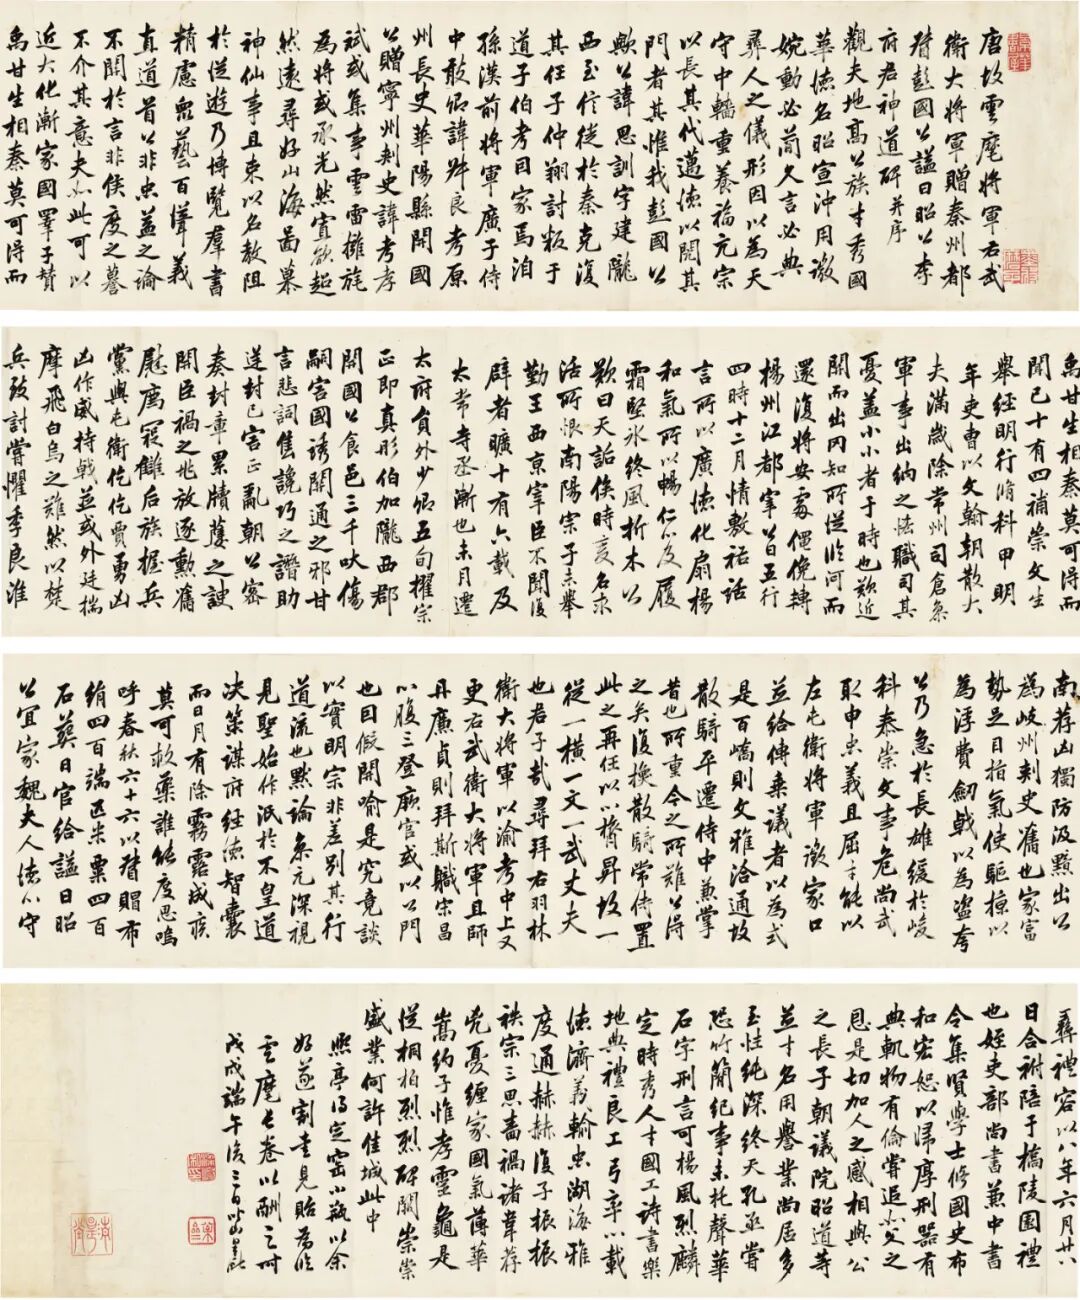 唐故雲麾將軍右武
衛大將軍贈秦州都
督彭國公謚曰昭公李
府君神道碑并序
觀夫地高公族才秀國
華德名昭宣沖用激
婉動必簡久言必典
彝人之儀形因以為天
守中轄重養福元宗
以長其代邁德以閱其
門者其惟我彭國公
歟公諱思訓字建隴
西至信徙於秦克復
其任子仲翔討叛于
道子伯考因家焉洎
孫漢前將軍廣于侍
中敢卿諱良考原
州長史華陽縣開國
公贈寧州刺史諱考孝
斌或集事雲雷擁旄
為將或承光然宜欲超
然遠尋好山海圖慕
神仙事且束以名教阻
於從遊乃博覽羣書
精慮眾藝百義
直道首以非忠益之論
不關於言非侯度之謩
不介其意夫如此可以
近大化漸家國睪子贊
禹甘生相秦莫可得而
禹甘生相秦莫可得而
聞已十有四補崇文生
舉經明行脩科甲明
年吏曹以文翰朝散大
夫滿歲除常州司倉參
軍事出納之恡職司其
憂蓋小小者于時也欻近
關而出罔知所從俯河而
還復將安處僶俛轉
楊州江都宰公曰五行
四時十二月情敷祐話
言所以廣德化扇楊
和氣所以暢仁心度履
霜堅冰終風折木以
歎曰天詬俟時變名求
活所恨南陽宗子未舉
勤王西京宰臣不聞復
辟者曠十有六載及
太常寺丞漸也未月遷
太府負外少卿五旬擢宗
正即真彤伯加隴西郡
開國公食邑三千吠傷
嗣害國誘關通之邪甘
言悲詞售讒巧之譖助
逆封己害正亂朝公密
奏封章累牘之諛
閒臣禍之兆放逐勳舊
慰薦冤讎后族握兵
黨與屯衛仡仡賈勇凶
凶作威持戟並或外廷揣
摩飛白烏之難然以焚
兵致討嘗懼季良淮
南荐凶獨防汲黯出公
為岐州刺史舊也家富
勢足目指氣使驅掠以
為浮費劒戟以為盜夸
公乃急於長雄緩於峻
科奏崇文事危尚武
取申忠義且屈才能以
左屯衛將軍徵家口
並給傳乘議者以為式
是百嶠則文雅洽通故
散騎平遷侍中兼掌
昔也所重今之所難公得
之矣復換散騎常侍置
此之再任以心膂昇故一
從一橫一文一武丈夫
也君子哉尋拜右羽林
衛大將軍以渝考中上又
更右武衛大將軍且師
丹廉貞則拜斯職宋昌
心腹三登厥官或以公門
也因假開喻是究竟談
以實明宗非差別其行
道流也默論參元深視
見聖始作泯於不皇道
決策謀府經德智囊
而日月有除霧露成疾
莫可救藥誰能度思嗚
呼春秋六十六以督賵布
絹四百端匹米粟四百
石葬日官給謚曰昭
公宜家魏夫人德心守
彝禮容以八年六月廿八
日合祔陪于橋陵園禮
也姪吏部尚書兼中書
令集賢學士修國史布
和宏恕以歸厚刑器有
典軌物有倫嘗追如父之
恩是切加人之感相與公
之長子朝議院昭道等
並才名用譽業尚居多
至性純深終天孔亟嘗
恐竹簡紀事未托聲華
石字刑言可楊風烈麟
定時秀人才國工詩書樂
地典禮良工弓乎心載
德濟義輸忠湖海雅
度通赫赫復子振振
袟宗三思嗇禍諸韋荐
兇憂纏家國氣薄華
嵩約子惟孝靈龜是
從相柏烈烈碑闕崇崇
盛業何許佳城此中
熙亭得定窑小瓶以余
好遂割愛見貽為臨
雲麾長卷以酬之時
戊戌端午後三日